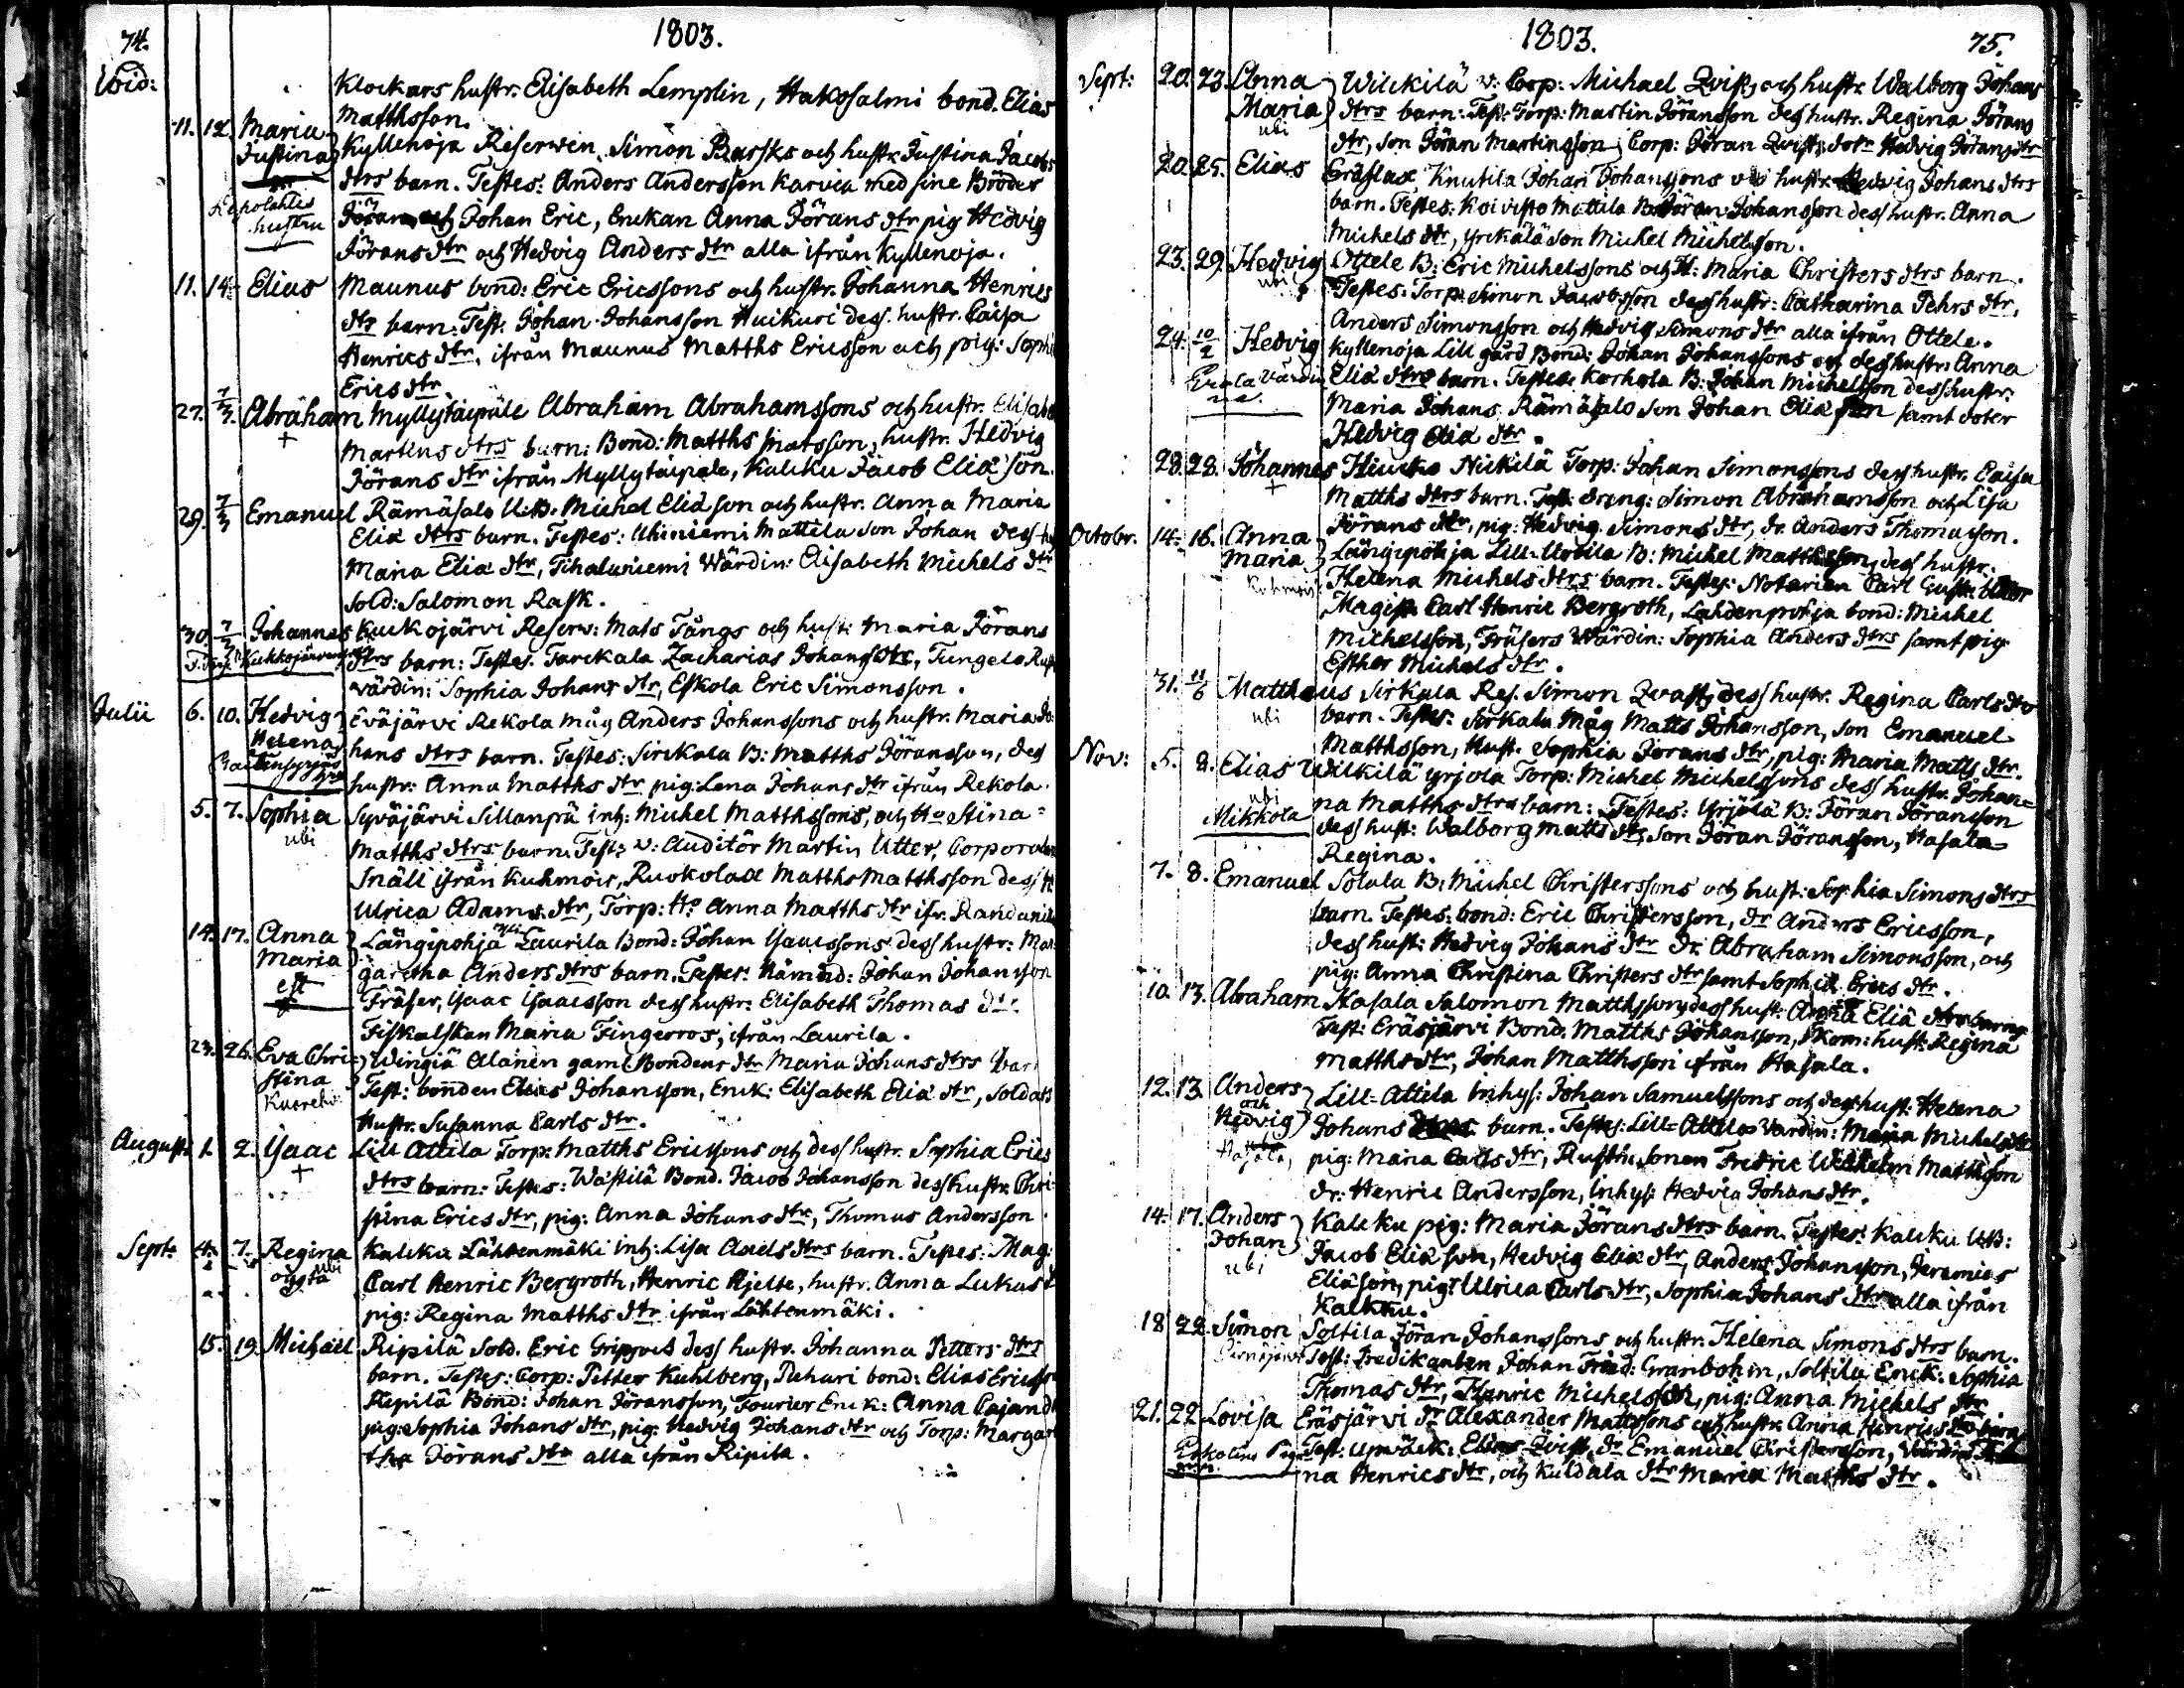 74.
1803.
Ibid:
Klockars hustr. Elisabeth Lemplin, Hakosalmi bond. Elias
Matthsson.
11. 12. Maria Justina
Kyllenoja Reserwen Simon Bursks och hustr. Justina Jacobs
dtrs barn. Testes: Anders Andersson Karvia med sine Bröder
Lapolahtis hustru
Jöran och Johan Eric, Enckan Anna Jörans dtr pig Hedvig
Jörans dtr och Hedvig Anders dtr alla ifrån Kyllenoja.
11. 14. Elias Maunus bond: Eric Ericssons och hustr. Johanna Henrics
dtr barn: Test. Johan Johansson Huikuri dess hustr. Caisa
Henrics dtr, ifrån Maunus Matths Ericsson och pig: Sophi
Erics dtr.
27. 7/3. Abraham Myllytaipale Abraham Abrahamssons och hustr. Elisab
+
Martins dtrs barn: Bond: Matths Matsson, hustr. Hedvig
Jörans dtr ifrån Myllytaipale, Kaliku Jacob Eliä son.
29. 7/3 Emanuel Rämäsalo U:B. Michel Eliä son och hustr. Anna Maria
Eliä dtrs barn. Testes: Uhiniemi Mattila son Johan dess
Maria Eliä dtr, Tihalaniemi Wärdin: Elisabeth Michels dtr
Sold: Salomon Rask.
30. 7/3 Johannes Kuckojärvi Reserv: Mats Tångs och hustr: Maria Jörans
Kukkojärven
dtrs barn: Testes. Tarckala Zacharias Johans dtr, Tungelo Rust
wärdin: Sophia Johans dtr, Eskola Eric Simonsson.
Julii 6. 10. Hedvig Helena
Eväjärvi Rekola måg Anders Johanssons och hustr. Maria Jo:
hans dtrs barn. Testes: Sirckala B: Matths Jöransson, dess
hustr: Anna Matths dtr pig: Lena Johans dtr ifrån Rekola.
5. 7. Sophia Syväjärvi Sillanpä inh: Michel Matthssons, och Ho Stina
ubi
Matths dtrs barn. Test: v: Auditör Martin Utter, Corporalen
Snäll ifrån Kuhmois, Ruokolax Matths Matthsson dess H
Ulrica Adams dtr, Torp: Ho Anna Matths dtr ifr.
14. 17. Anna Maria
Längipohja Laurila Bond: Johan Isacssons dess hustr: Mar:
garetha Anders dtrs barn. Testes: Nämnd: Johan Johansson
Fräser, Isaac Isaacsson dess hustr: Elisabeth Thomas dtr
Fiskalskan Maria Fingerroos, ifrån Laurila.
23. 26. Eva Christina
Wingiä Alanen gaml Bondens dtr Maria Johans dtrs bar
Test: bonden Elias Johansson, Enck: Elisabeth Eliä dtr, Soldats
Hustr. Susanna Carls dtr.
August: 1. 2. Isaac Lill Attila Torp: Matths Ericssons och dess hustr. Sophia Erics
+
dtrs barn: Testes: Wästilä Bond. Jacob Johansson dess hustr. Chri
stina Erics dtr, pig: Anna Johans dtr, Thomas Andersson.
Sept: 4. 7. Regina Kaleku Lähtenmäki inh: Lisa Axels dtrs barn. Testes: Mag:
oägta ubi
Carl Henric Bergroth, Henric Hjelte, hustr. Anna Lukas d
pig: Regina Matths dtr ifrån Lähtenmäki.
15. 19. Michael Ripilä Sold. Eric Gripfvels dess hustr. Johanna Petters dtrs
barn. Testes: Corp: Petter Kuhlberg, Puhuri bond: Elias Ericsson
Ripilä Bond: Johan Jöransson, Fourier Enck: Anna Cajand
pig: Sophia Johans dtr, pig: Hedvig Johans dtr och Torp: Margar
tha Jörans dtr alla ifrån Ripila.
1803.
75.
Sept: 20. 23. Anna Maria
ubi
Wilckilä v: Corp: Michael Qvist, och hustr. Walborg Johans
dtrs barn: Test: Torp: Martin Jöransson dess hustr. Regina Jörans
dtr, son Jöran Martinsson, Corp: Jöran Qvists dotr Hedvig Jörans dtr
20. 25. Elias Eräslax Knutila Johan Johanssons och hustr. Hedvig Johans dtrs
barn. Testes: Koivisto Mattila B. Jöran Johansson dess hustr. Anna
Michels dtr, Yrckälä son Michel Michelsson.
23. 29. Hedvig Ottele B: Eric Michelssons och H: Maria Christers dtrs barn.
ubi
Testes: Torp: Simon Jacobsson dess hustr: Catharina Pehrs dtr,
Anders Simonsson och Hedvig Simons dtr alla ifrån Ottele.
24. 10/2 Hedvig Kyllenoja Lill gård Bond: Johan Johanssons och dess hustr: Anna
Eliä dtrs barn. Testes: Korhola B: Johan Michelsson dess hustr.
Maria Johans. Rämäsalo son Johan Eliä son samt doter
Hedvig Eliä dtr.
28. 28. Johannes Hiucko Nickilä Torp: Johan Simonssons dess hustr. Caisa
+
Matths dtrs barn. Test: dreng: Simon Abrahamsson och Lisa
Jörans dtr, pig: Hedvig Simons dtr, dr. Anders Thomasson.
Octobr. 14. 16. Anna Maria
Längipohja Lill-Uotila B: Michel Matthsson, dess hustr.
Helena Michels dtrs barn. Testes: Notarien Carl Gust: Utter
Magist. Carl Henric Bergroth, Lahdenpohja bond: Michel
Michelsson, Fräsers Wärdin: Sophia Anders dtrs samt pig
Esther Michels dtr.
31. 11/6 Mattheus Sirkala Res. Simon Qvast, dess hustr. Regina Carls dtr
ubi
barn. Testes: Sirkala måg Matts Johansson, son Emanuel
Matthsson, Hust. Sophia Jörans dtr, pig: Maria Matts dtr.
Nov: 5. 8. Elias Wilkilä Yrjola Torp: Michel Michelssons dess hustr. Johan=
ubi
Mikkola
na Matths dtrs barn: Testes: Yrjölä B: Jöran Jöransson
dess hust: Walborg Matts dtr, son Jöran Jöransson, Hasala
Regina.
7. 8. Emanuel Solala B: Michel Christerssons och hust: Sophia Simons dtrs
barn. Testes: bond: Eric Christersson, Dr Anders Ericsson,
dess hust: Hedvig Johans dtr Dr. Abraham Simonsson, och
pig: Anna Christina Christers dtr samt Sophia Erics dtr.
10. 13. Abraham Hasala Salomon Matthssons dess hust: Anna Eliä dtrs barn
Test: Eräsjärvi Bond. Matths Johansson, Skom: hust: Regina
Matths dtr, Johan Matthsson ifrån Hasala.
12. 13. Anders och Hedvig
Hasala,
Lill-Attila Inhys: Johan Samuelssons och dess hust: Helena
Johans barn. Testes: Lill-Attilas Wärdin: Maria Michels dtr
pig: Maria Carls dtr, Rusth: sonen Fredric Wilhelm Matthsson
dr: Henric Andersson, Inhys: Hedvig Johans dtr.
14. 17. Anders Johan
ubi
Kaleku pig: Maria Jörans dtrs barn. Testes: Kaleku UB:
Jacob Eliä son, Hedvig Eliä dtr, Anders Johansson, Jeremias
Eliäson, pig: Ulrica Carls dtr, Sophia Johans dtr alla ifrån
Kalkku.
18 22 Simon Soltila Jöran Johanssons och hustr. Helena Simons dtrs barn.
Test: Predikanten Johan Fried: Granbohm, Soltila Enck: Sophia
Thomas dtr, Henric Michelsson, pig: Anna Michels dtr
21. 22 Lovisa Eräsjärvi Dr Alexander Mattssons och hustr. Anna Henrics dtrs barn
Test: Upwäck: Elias Qvist, Dr Emanuel Christersson,
na Henrics dtr, och Kuldala dtr Maria Matths dtr.